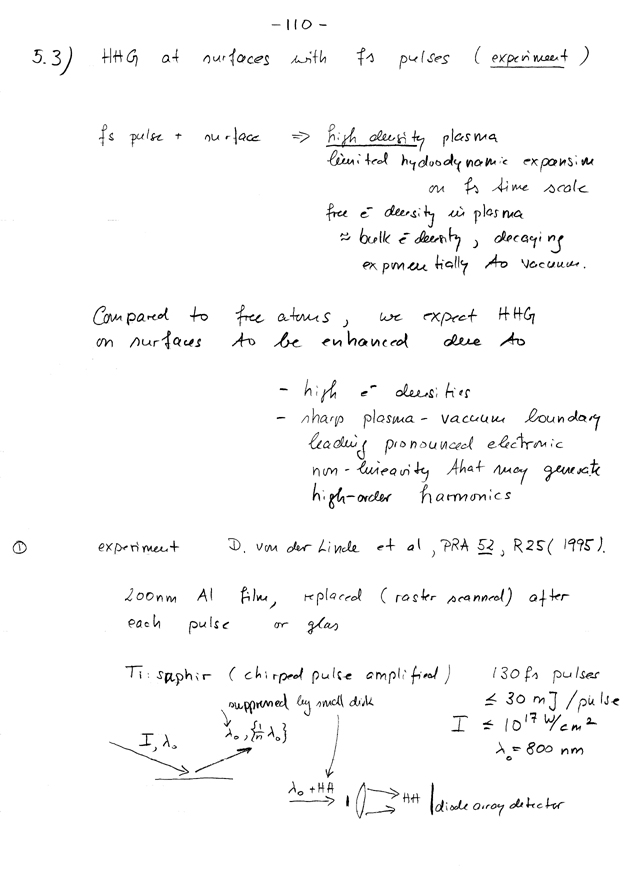 -110-
5.3) HHG at surfaces with fs pulses (experiment)
fs pulse + surface ⇒ high density plasma
limited hydrodynamic expansion
on fs time scale
free e⁻ density in plasma
≈ bulk e⁻ density, decaying
exponentially to vacuum.
Compared to free atoms, we expect HHG
on surfaces to be enhanced due to
- high e⁻ densities
- sharp plasma-vacuum boundary
leading pronounced electronic
non-linearity that may generate
high-order harmonics
① experiment D. von der Linde et al, PRA 52, R25 (1995).
200nm Al film, replaced (raster scanned) after
each pulse or glas
Ti:saphir (chirped pulse amplified) 130 fs pulses
≤ 30 mJ/pulse
I ≤ 10¹⁷ W/cm²
λ₀ = 800 nm
suppressed by small disk
I, λ₀ λ₀, {1/n λ₀}
λ₀ + HH HH diode array detector